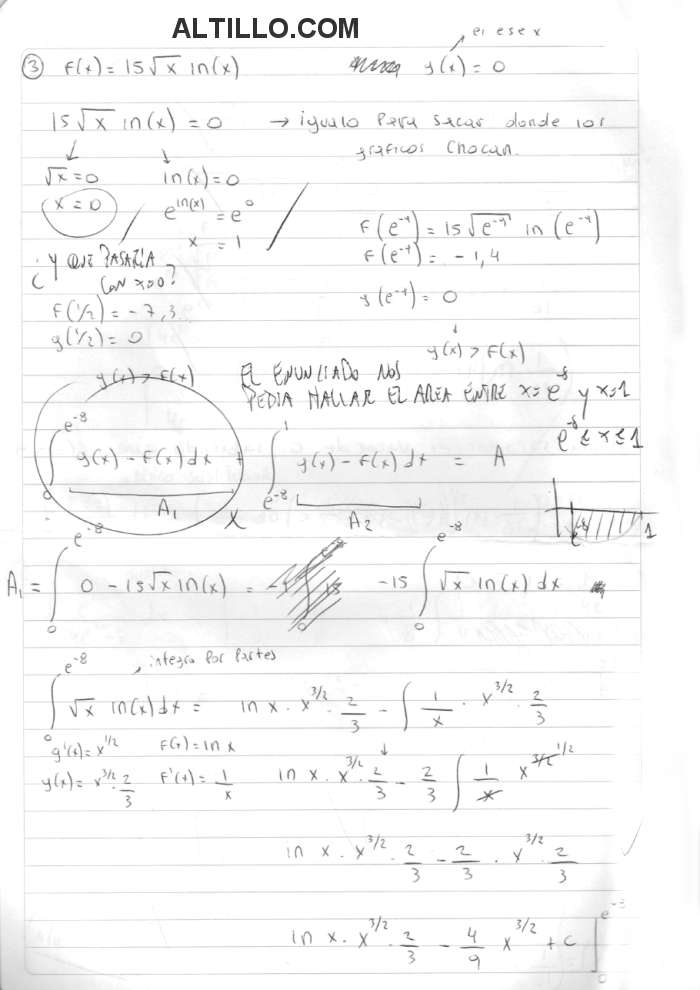 ALTILLO.COM
el eje x
③ f(x) = 15√x ln(x) g(x) = 0
15√x ln(x) = 0 → igualo para sacar donde los
graficos chocan.
√x = 0 ln(x) = 0
x = 0 e^ln(x) = e^0
x = 1
¿Y QUE PASARÍA
CON x=0?
f(1/2) = -7,3
g(1/2) = 0
g(x) > f(x)
f(e^-4) = 15√e^-4 ln(e^-4)
f(e^-4) = -1,4
g(e^-4) = 0
g(x) > f(x)
EL ENUNCIADO NOS
PEDIA HALLAR EL AREA ENTRE x=e^-8 y x=1
e^-8 ≤ x ≤ 1
∫_0^e^-8 g(x) - f(x) dx + ∫_e^-8^1 g(x) - f(x) dx = A
A₁ X A₂
e^-8 1
A₁ = ∫_0^e^-8 0 - 15√x ln(x) = -15 ∫_0^e^-8 √x ln(x) dx
, integro por partes
∫_0^e^-8 √x ln(x) dx = ln x · x^3/2 · 2/3 - ∫ 1/x · x^3/2 · 2/3
g'(x) = x^1/2 f(x) = ln x
g(x) = x^3/2 · 2/3 f'(x) = 1/x ln x · x^3/2 · 2/3 - 2/3 ∫ 1/x x^3/2 1/2
ln x · x^3/2 · 2/3 - 2/3 · x^3/2 · 2/3
ln x · x^3/2 · 2/3 - 4/9 x^3/2 + c |_0^e^-8